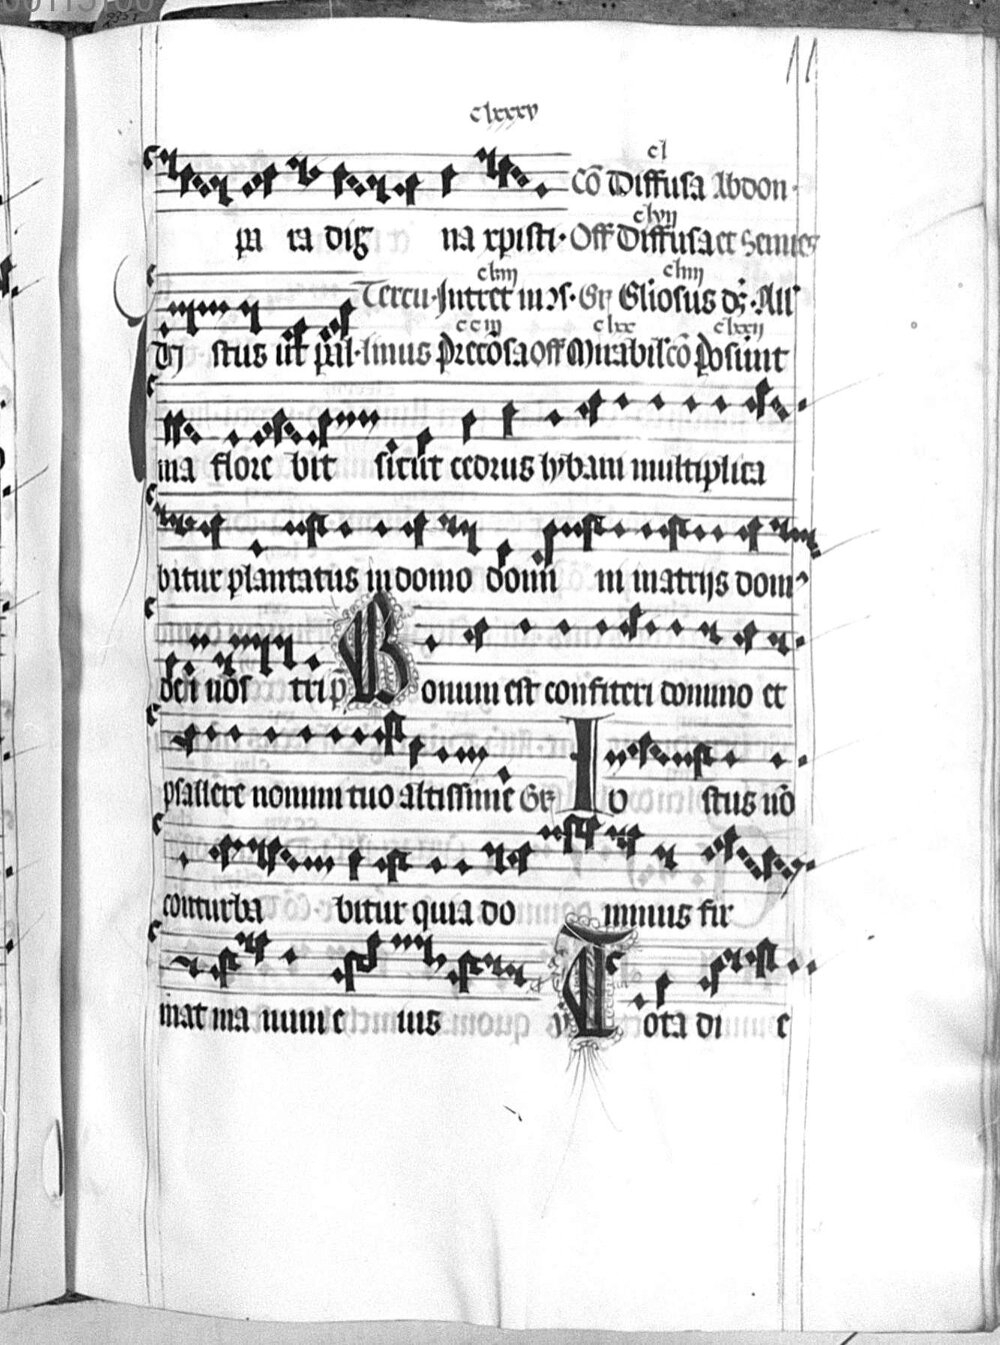 clxxxv
cl
Cō Diffusa Abdon·
clvii
pa ra dig na xpisti· Off Diffusa et Semies
cliiii cliiii
Tercu· Intret in ɔs· Gr Gliosus dꝰ· All'
cciii clxx clxxii
stus ut pal· Imus Preciosa Off Mirabil' cō Posuit
ma flore bit sicut cedrus lybani multiplica
bitur plantatus in domo domi in matrijs dom
dei nos trip Bonum est confiteri domino et
psallere nomini tuo altissime Gr Iustus nō
conturba bitur quia do minus fir
mat ma num e ius v̄ Tota di e